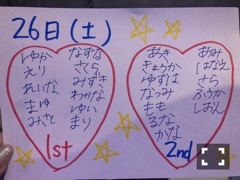 26日(土)
ゆか
えり
れいな
まゆ
みさと
なずな
さくら
みずき
わかな
ゆい
まり
1st
あき
きょうか
ゆずは
なつみ
もも
るな
かな
あみ
はなえ
さら
ふうか
しおん
2nd